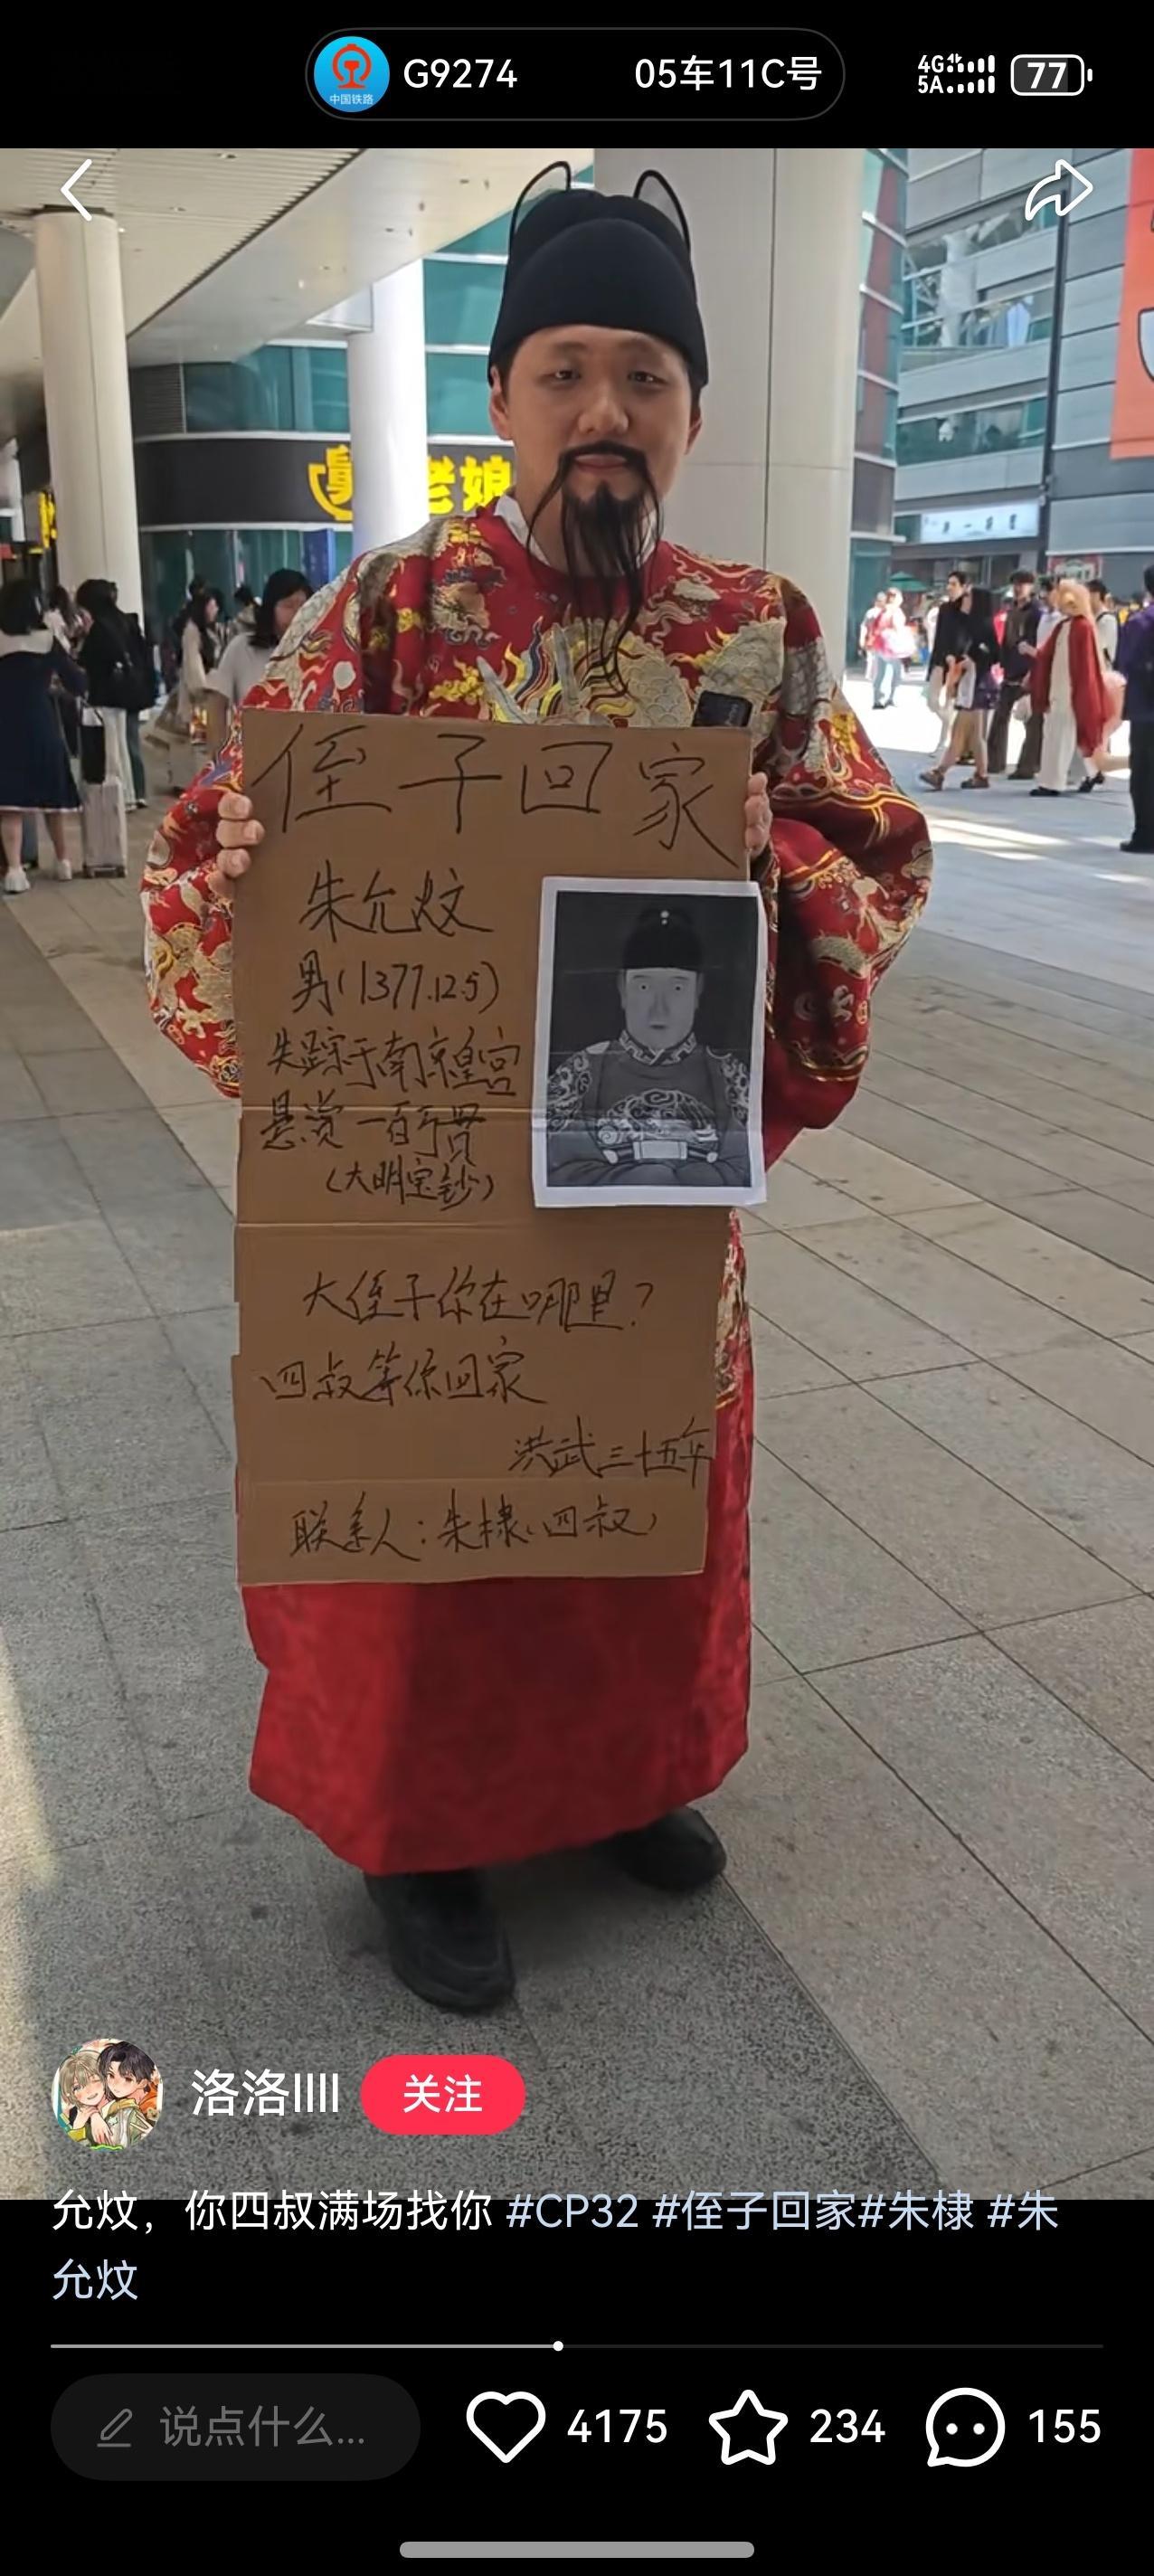 中国铁路
G9274
05车11C号
4G
5A
77
老娘
侄子回家
朱允炆
男(1377.12.5)
失踪于南京皇宫
悬赏一百万贯
(大明宝钞)
大侄子你在哪里?
四叔等你回家
洪武三十五年
联系人:朱棣(四叔)
洛洛llll
关注
允炆，你四叔满场找你 #CP32 #侄子回家#朱棣 #朱
允炆
说点什么...
4175
234
155